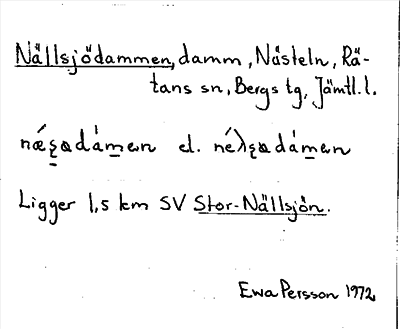 Nällsjödammen, damm, Nästeln, Rä-
tans sn, Bergs tg, Jämtl. l.
nǽʂɷdámɷn el. néλʂɷdámɷn
Ligger 1,5 km SV Stor-Nällsjön.
Ewa Persson 1972